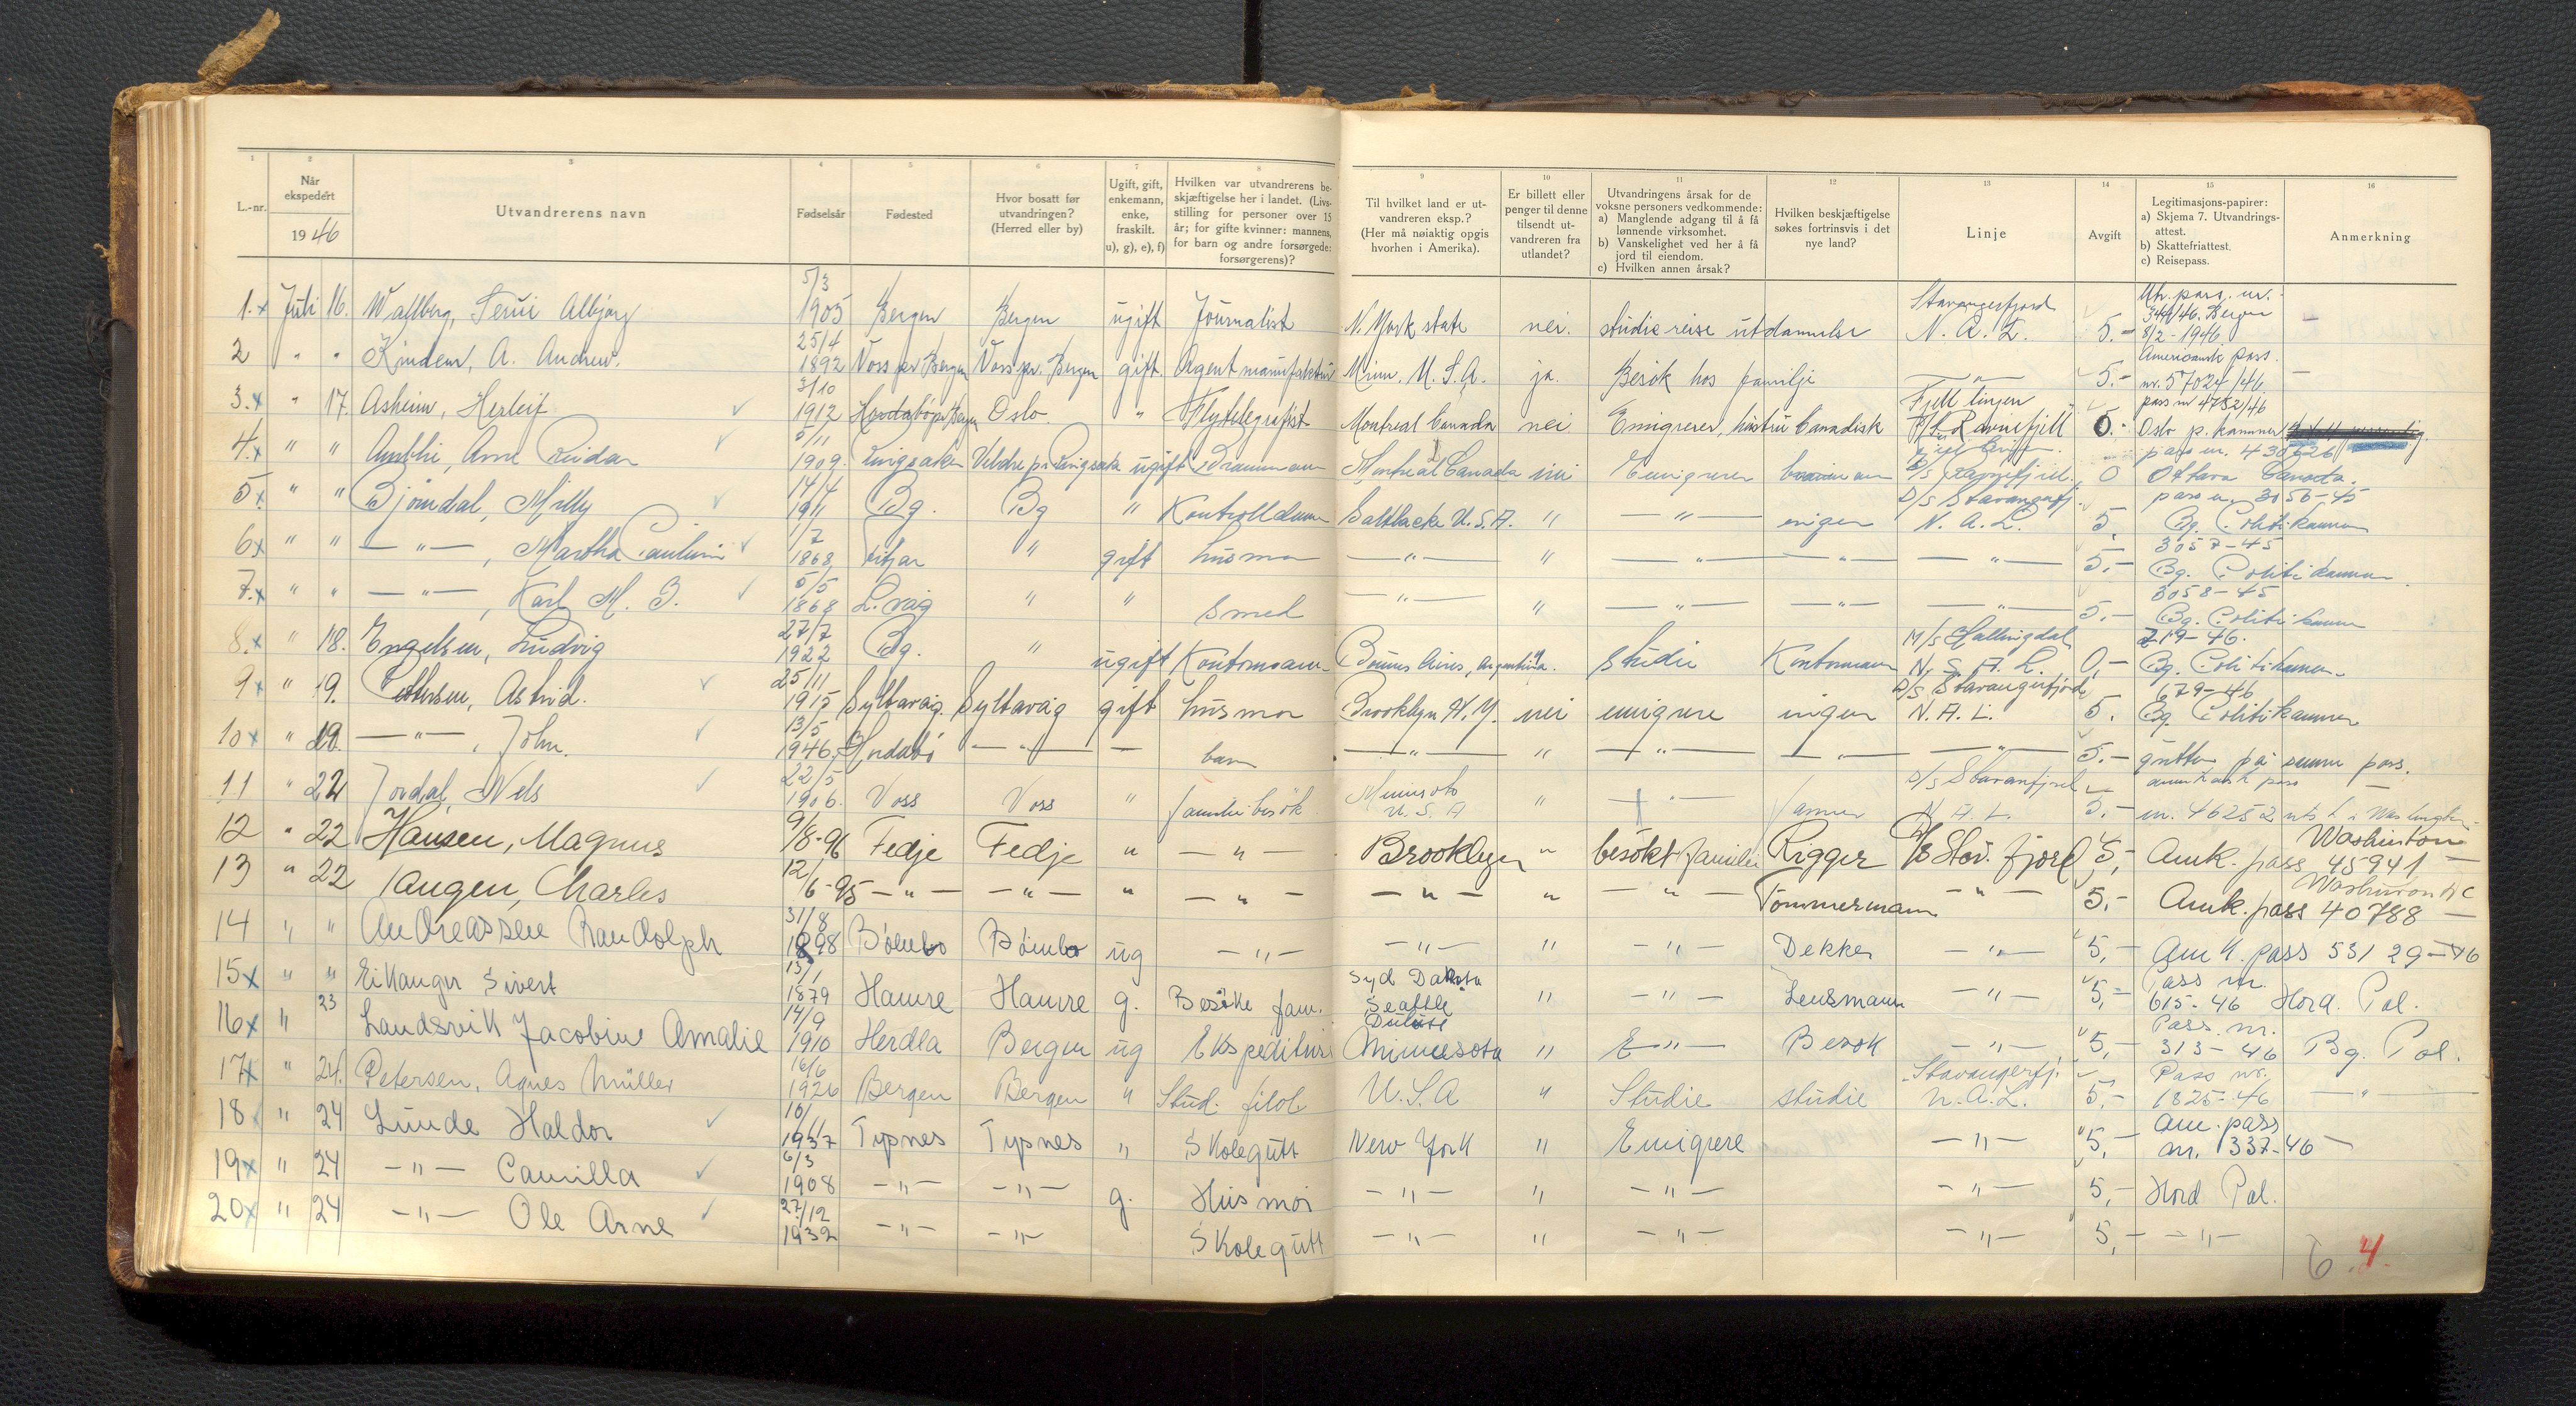 1 2 3 4 5 6 7 8 9 10 11 12 13 14 15 16
L.-nr. Når ekspedert 1946 Utvandrerens navn Fødselsår Fødested Hvor bosatt før utvandringen? (Herred eller by) Ugift, gift, enkemann, enke, fraskilt. u), g), e), f) Hvilken var utvandrerens beskjæftigelse her i landet. (Livsstilling for personer over 15 år; for gifte kvinner: mannens, for barn og andre forsørgede: forsørgerens)? Til hvilket land er utvandreren eksp.? (Her må nøiaktig opgis hvorhen i Amerika). Er billett eller penger til denne tilsendt utvandreren fra utlandet? Utvandringens årsak for de voksne personers vedkommende: a) Manglende adgang til å få lønnende virksomhet. b) Vanskelighet ved her å få jord til eiendom. c) Hvilken annen årsak? Hvilken beskjæftigelse søkes fortrinsvis i det nye land? Linje Avgift Legitimasjons-papirer: a) Skjema 7. Utvandringsattest. b) Skattefriattest. c) Reisepass. Anmerkning
1.x Juli 16. Wallberg, Albjørg 5/3 1905 Bergen Bergen ugift Journalist N. York state nei. studiereise utdannelse Stavangerfjord N. A. L. 5.- pass. nr. 344/46. Bergen 8/2-1946 —
2 " " Kindem, A. Andrew. 25/4 1892 Voss pr Bergen Voss pr. Bergen gift. Agent manufaktur Minn. U.S.A. ja. Besøk hos familje —"— 5.- Amerikansk pass. nr. 57024/46 —
3.x " 17. Asheim, Herleif 3/10 1912 Oslo " Flytelegrafist Montreal Canada nei Emigrerer, hustru Canadisk Fjell linjen 0.- pass nr 4752/46 Oslo p. kammer
4.x " " Arne Reidar 5/11 1909. Ringsaker Veldre pr. Ringsaker ugift Montreal Canada nei Emigrerer 0 pass nr. 430526 Ottawa Canada.
5x. " " Bjørndal, Milly 14/4 1911 Bg. Bg " Kontrolldame U.S.A. " —"— ingen D/S Stavangerfj. N. A. L. 5, pass nr 3056-45 Bg. Politikammer
6x " " —"—, Martha Pauline 1/7 1868, Fitjar " gift husmor —"— " —"— —"— —"— 5.- 3057-45 Bg. Politikammer.
7.x " " —"—, Karl M. J. 5/5 1868 L.våg " " smed —"— " —"— —"— —"— 5.- 3058-45 Bg. Politikammer
8.x " 18. Engelsen, Ludvig 27/7 1922 Bg. " ugift Kontormann Buenos Aires, Argentina. " studie Kontormann M/S Hallingdal N. S. A. L. 0,- 719-46. Bg. Politikammer.
9x " 19. Pettersen, Astrid. 25/11 1915 Syltavåg. Syltavåg gift husmor Brooklyn N.Y. nei emigrere ingen D/S Stavangerfjord N.A.L. 5. 679-46 Bg Politikammer
10x " 19. —"—, John. 13/5 1946. —"— — barn —"— " —"— —"— —"— 5.- gutten på samme pass.
11 " 22 Jordal, Nels 22/5 1906. Voss Voss " familiebesøk Minnesota U.S.A " —"— farmer D/S N.A.L. 5.- amerikansk pass nr. 46252 uts. i Washington —
12 " 22 Hansen, Magnus 9/8-96 Fedje Fedje " —"— Brooklyn " besøkt familie Rigger D/S Stav. fjord 5,- Amk. pass 45941 Washinton —
13 " 22 Langen, Charles 12/6-95 —"— —"— " —"— —"— " —"— Tømmermann —"— 5.- Amk. pass 40788 Washinton DC —
14 " " Andreassen Randolph 31/8 1898 Bømlo Bømlo ug —"— —"— " —"— Dekker —"— 5,- Am k. pass 53129-46
15x " " Eikanger Sivert 13/1 1879 Hamre Hamre g. Besøke fam. Syd Dakota Seattle " —"— Lensmann —"— 5,- Pass nr. 615-46 Hord. Pol.
16x " 23 Landsvik Jacobine Amalie 14/9 1910 Herdla Bergen ug Ekspeditrise Duluth Minnesota " E—"— Besøk —"— 5,- Pass. nr. 313-46 Bg. Pol.
17x " 24. Petersen, Agnes Müller 16/6 1926 Bergen Bergen " Stud. filol. U.S.A " Studie studie Stavangerfj. N.A.L. 5,- Pass nr. 1825-46 —"—
18 " 24 Lunde Haldor 10/11 1937 Typnes Typnes " Skolegutt New York " Emigrere —"— 5,- am. pass nr. 1337-46 —
19x " 24 —"— Camilla 6/3 1908 —"— —"— g. Husmor —"— " —"— —"— 5,- Hord Pol.
20x " 24 —"— Ole Arne 27/12 1932 —"— —"— Skolegutt —"— " —"— —"— 5,- —"—
6 4.